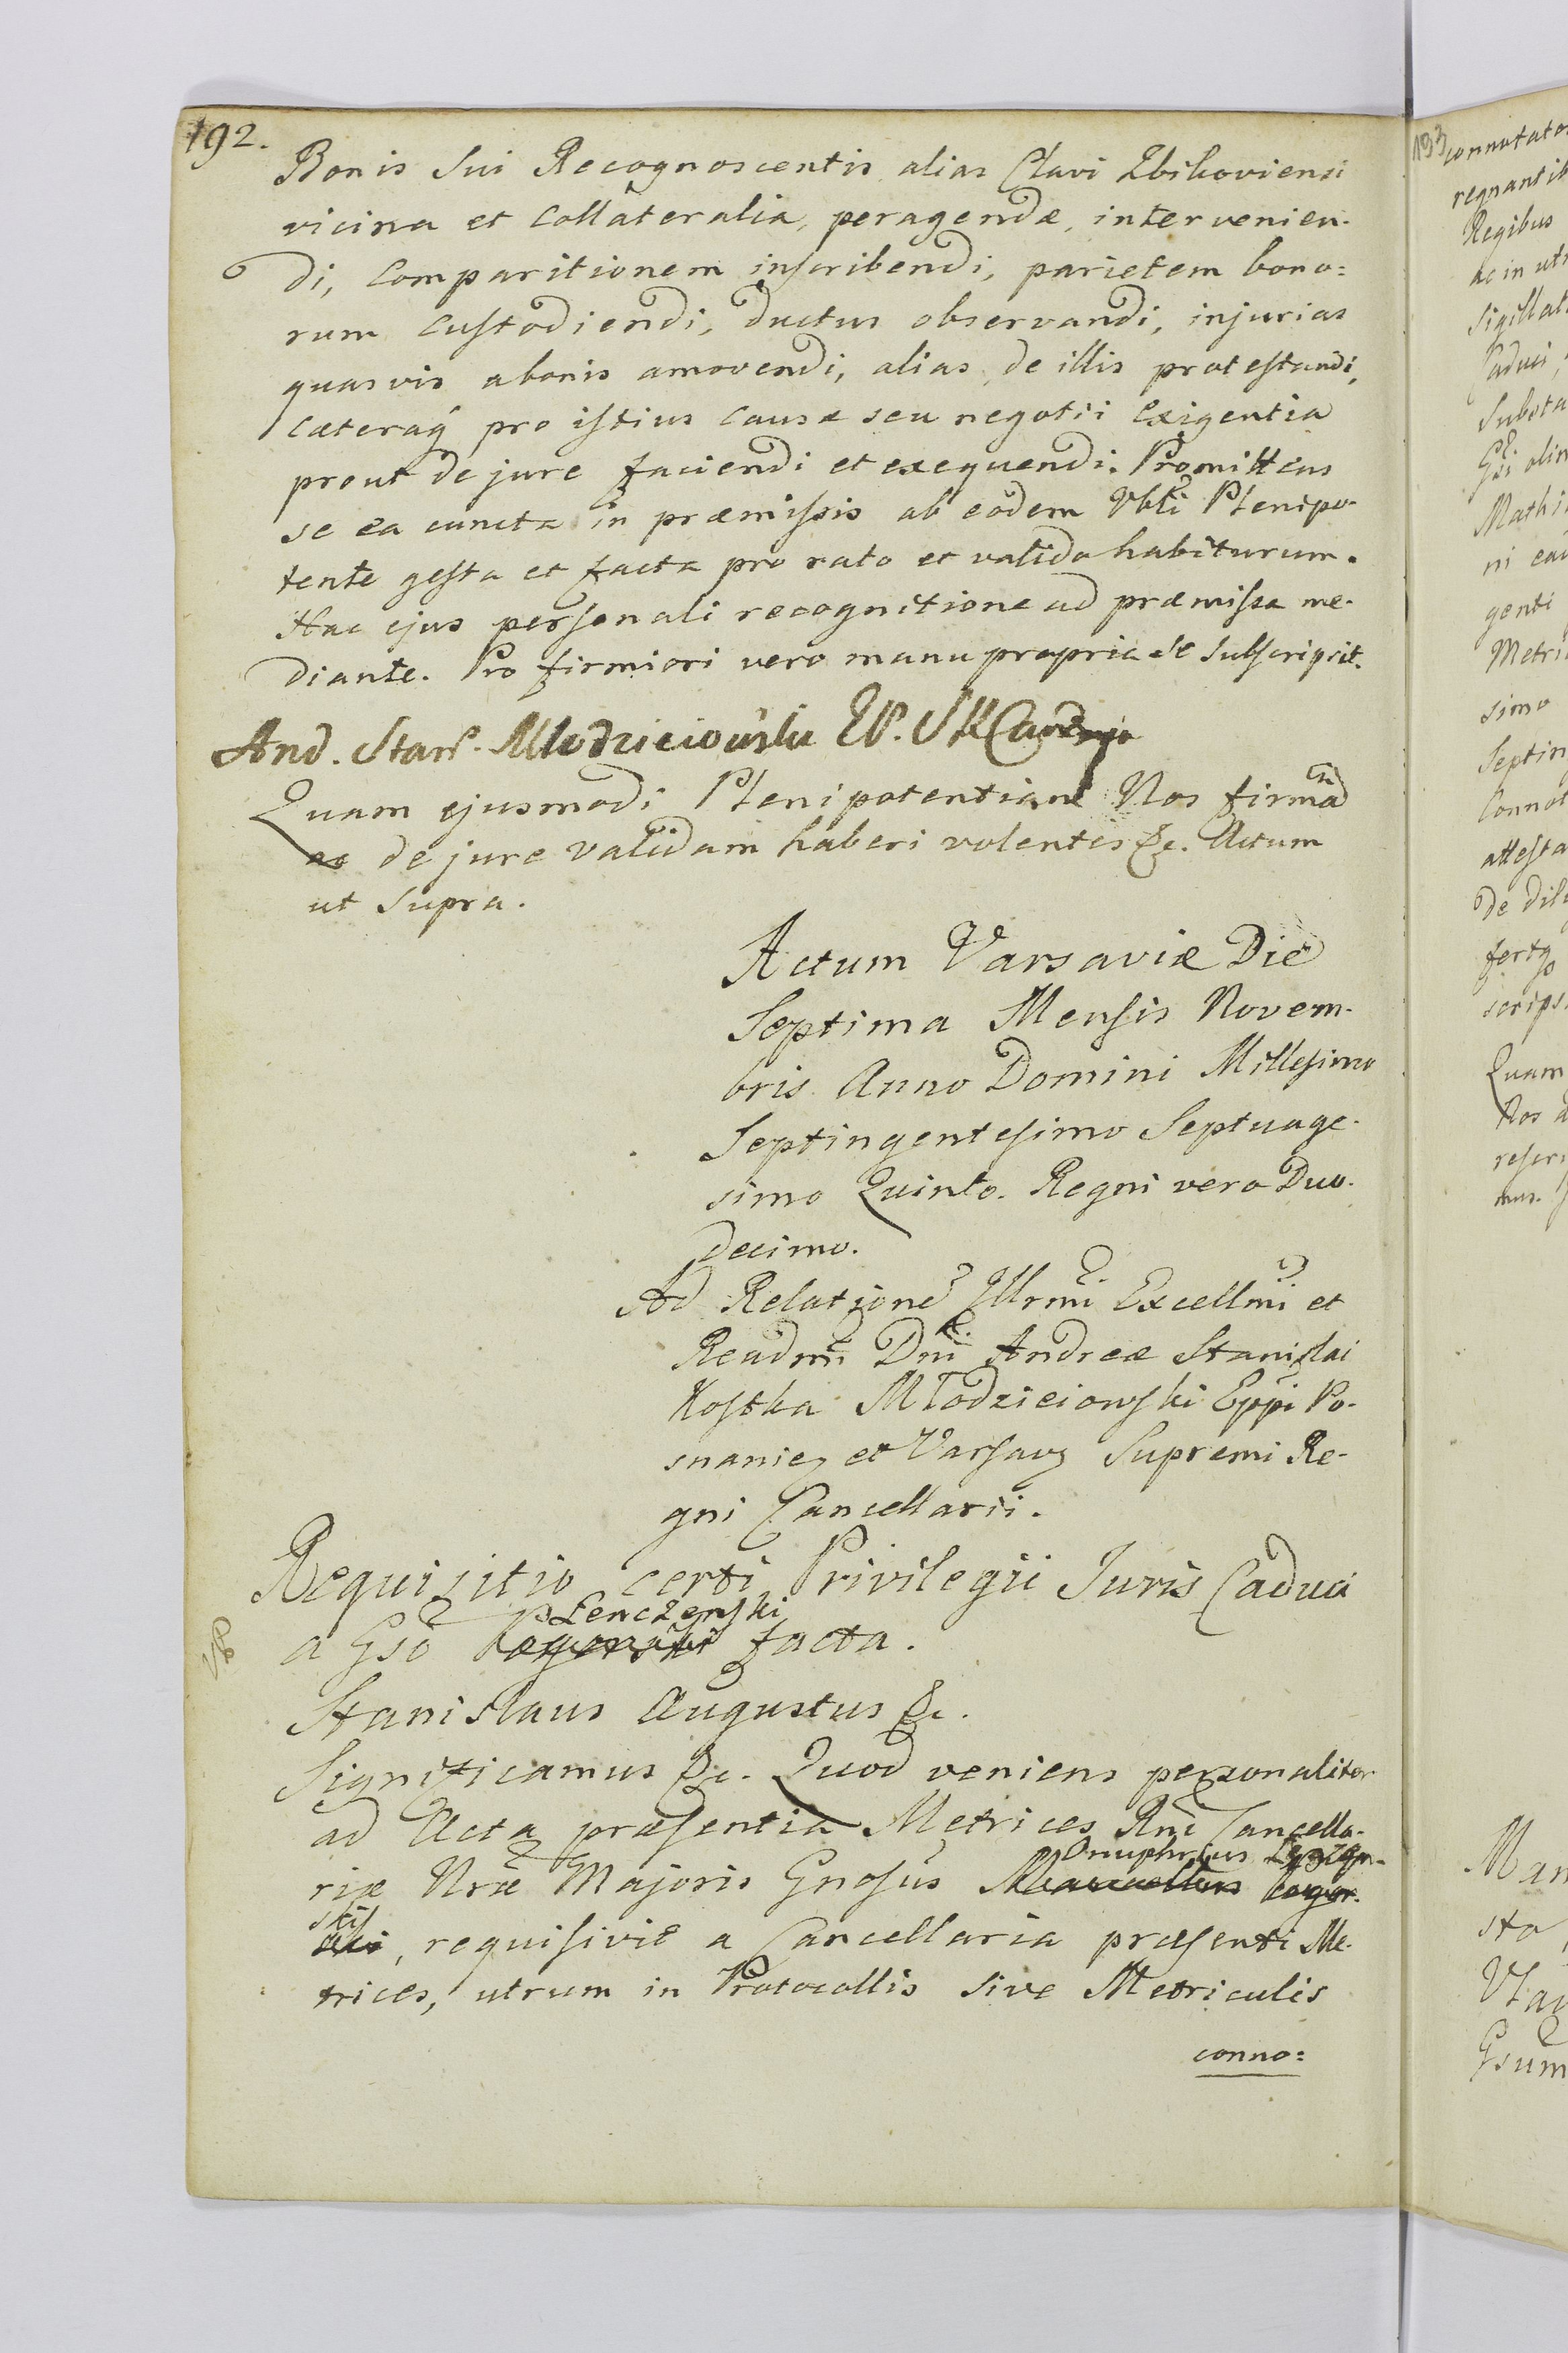 192.
Bonis sui Recognoscentis alias Clavi Zbikoviensi
vicina et Collateralia, peragendæ, intervenien-
di, Comparitionem inscribendi, parietem bono=
rum Custodiendi, ductus observandi, injurias
quasvis abonis amovendi, alias de illis protestandi,
Cæteraq pro istius Causæ seu negotii Exigentia
prout de jure faciendi et exequendi. Promittens
se ea cuncta in præmissis ab eodem Vbli Plenipo-
tente gesta et facta pro rato et valido habiturum.
Hac ejus personali recognitione ad præmissa me-
diante. Pro firmiori vero manu propria se subscripsit.
And. Stan. Młodzieiowski EP.
Quam ejusmodi Plenipotentiam Nos firmã
ac de jure validam haberi volentes &c. Actum
ut supra.
Actum Varsaviæ Die
Septima Mensis Novem-
bris Anno Domini Millesimo
Septingentesimo Septuage-
simo Quinto. Regni vero Duo-
decimo.
Ad Relationẽ Illrmi Excellmi et
Readmi D.ni Andreæ Stanislai
Kostka Młodzieiowski Eppi Po-
snanie, et Varsav, Supremi Re-
gni Cancellarii.
Requisitio certi Privilegii Juris Caduci
Lenczenski
a Gso facta.
Stanislaus Augustus &c.
Significamus &c. Quod veniens personaliter
ad Acta præsentia Metrices Rni Cancella-
Onuphrius
riæ Nræ Majoris Gnosus
ski
, requisivit a Cancellaria præsenti Me-
trices, utrum in Protocollis sive Metriculis
conno=
193
connotato
regnantib
Regibus
ac in utr
Sigillat
Caduci,
Substa
Gsi olim
Mathi
ni ea
genti
Metri
simo
Septin
Connot
attesta
de dil
fert
scrips
Quam
Nos a
reser
mus.
Man
sto
Vla
Gsum